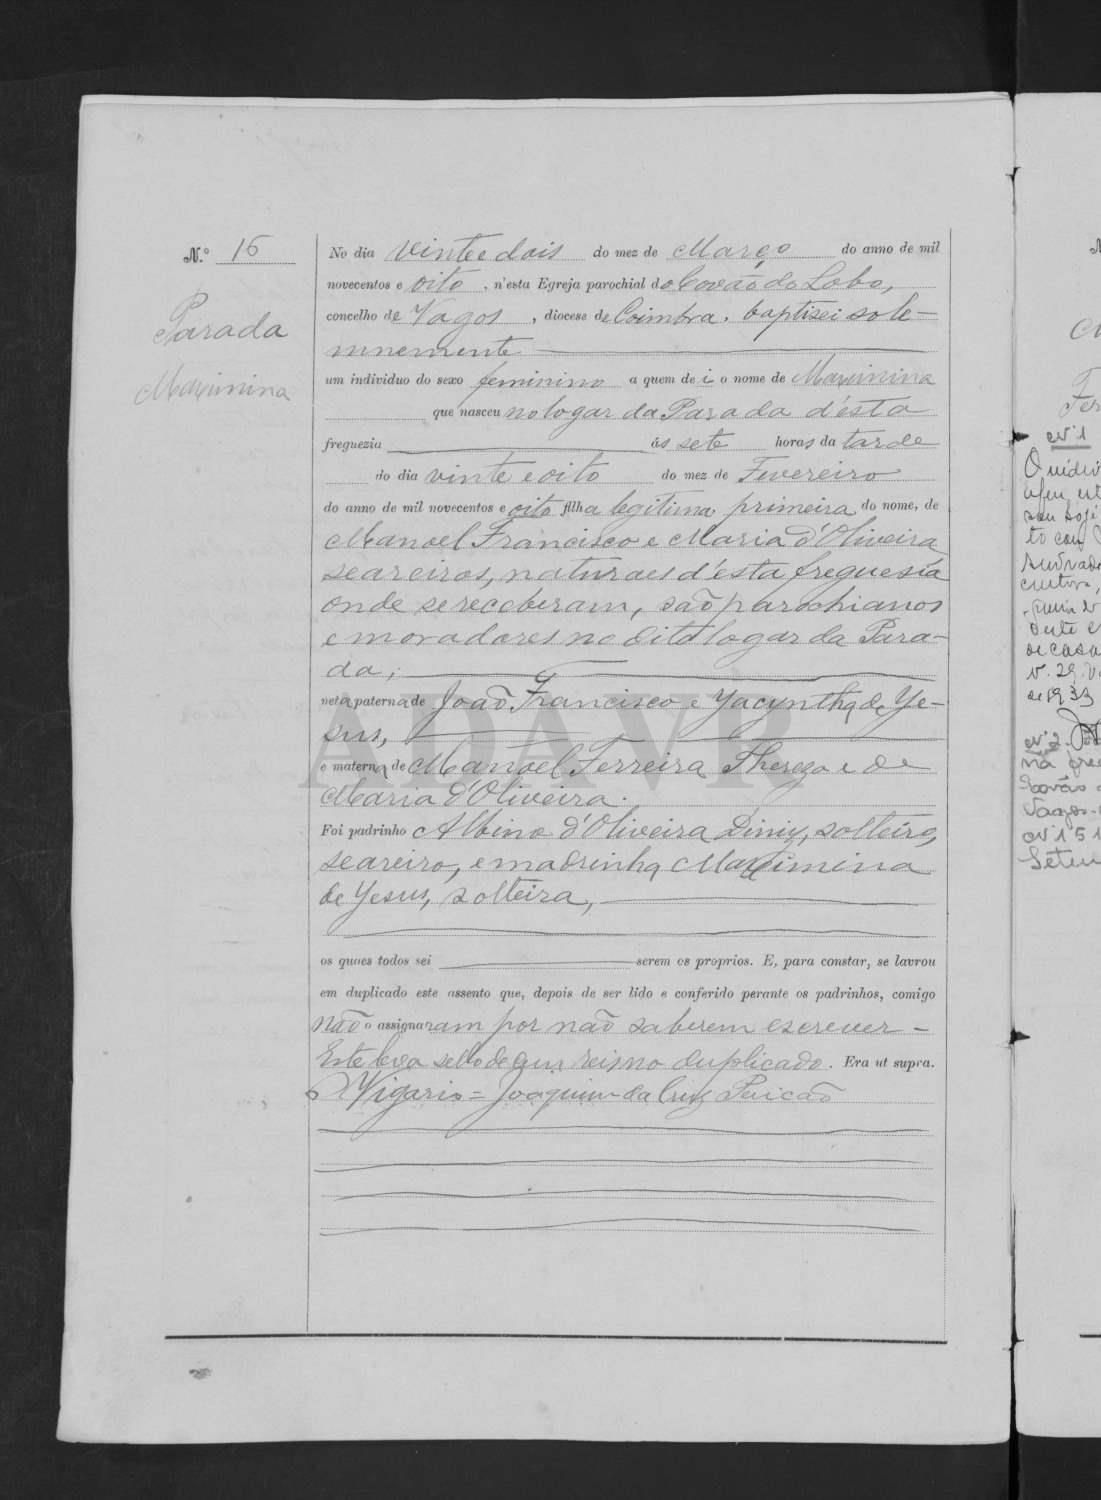 N.º 16
Parada
Maximina
No dia vinte e dois do mez de Março do anno de mil
novecentos e oito, n'esta Egreja parochial do Covão do Lobo,
concelho de Vagos, diocese de Coimbra, baptisei sole-
mnemente
um individuo do sexo feminino a quem dei o nome de Maximina
que nasceu no logar da Parada d'esta
freguezia ás sete horas da tarde
do dia vinte e oito do mez de Fevereiro
do anno de mil novecentos e oito filha legitima, primeira do nome, de
Manoel Francisco e Maria d'Oliveira
seareiros, naturaes d'esta freguesia
onde se receberam, são parochianos
e moradores no dito logar da Para-
da;
neta paterna de João Francisco e Jacyntha de Je-
sus,
e materna de Manoel Ferreira Thereza e de
Maria d'Oliveira.
Foi padrinho Albino d'Oliveira Diniz, solteiro,
seareiro, e madrinha Maximina
de Jesus, solteira,
os quaes todos sei serem os proprios. E, para constar, se lavrou
em duplicado este assento que, depois de ser lido e conferido perante os padrinhos, comigo
não o assignaram por não saberem escrever -
Este leva sello de cem reis no duplicado. Era ut supra.
O Vigario = Joaquim da Cruz
ADAVR
Nº 1
de casa
de 1933
Nº 2
Covão
Vagos